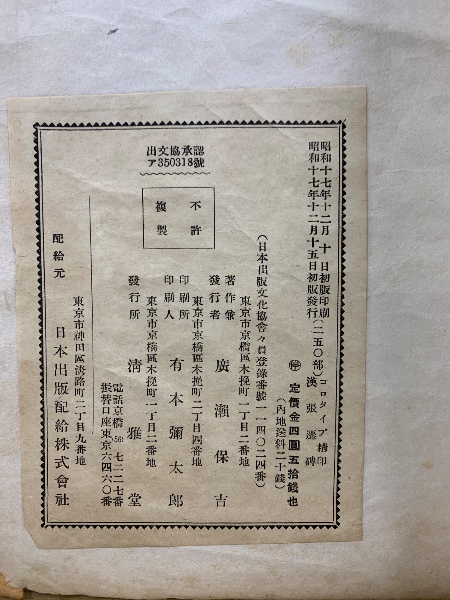 昭和十七年十二月十日初版印刷
昭和十七年十二月十五日初版發行(二五〇部)
コロタイプ精印
漢張遷碑
㊕定價金四圓五拾錢也
(內地送料二十錢)
(日本出版文化協會々員登錄番號一一四〇二四番)
東京市京橋區木挽町一丁目二番地
著作兼
發行者 廣瀨保吉
東京市京橋區木挽町二丁目四番地
印刷所
印刷人 有本彌太郎
東京市京橋區木挽町一丁目二番地
發行所 淸雅堂
電話京橋(56)七二二七番
振替口座東京六四六〇番
東京市神田區淡路町二丁目九番地
配給元 日本出版配給株式會社
不許
複製
出文協承認
ア350318號